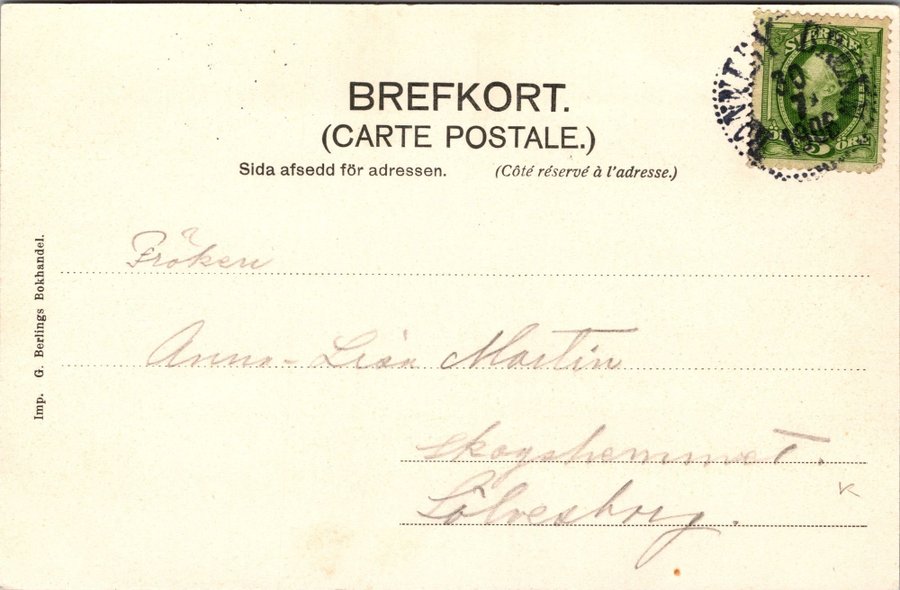 BREFKORT.
(CARTE POSTALE.)
Sida afsedd för adressen. (Côté réservé à l'adresse.)
SVERIGE
5 5 ÖRE
30
7
1906
Imp. G. Berlings Bokhandel.
Fröken
Anna-Lisa Martin
Skogshemmet.
Sölvesborg.